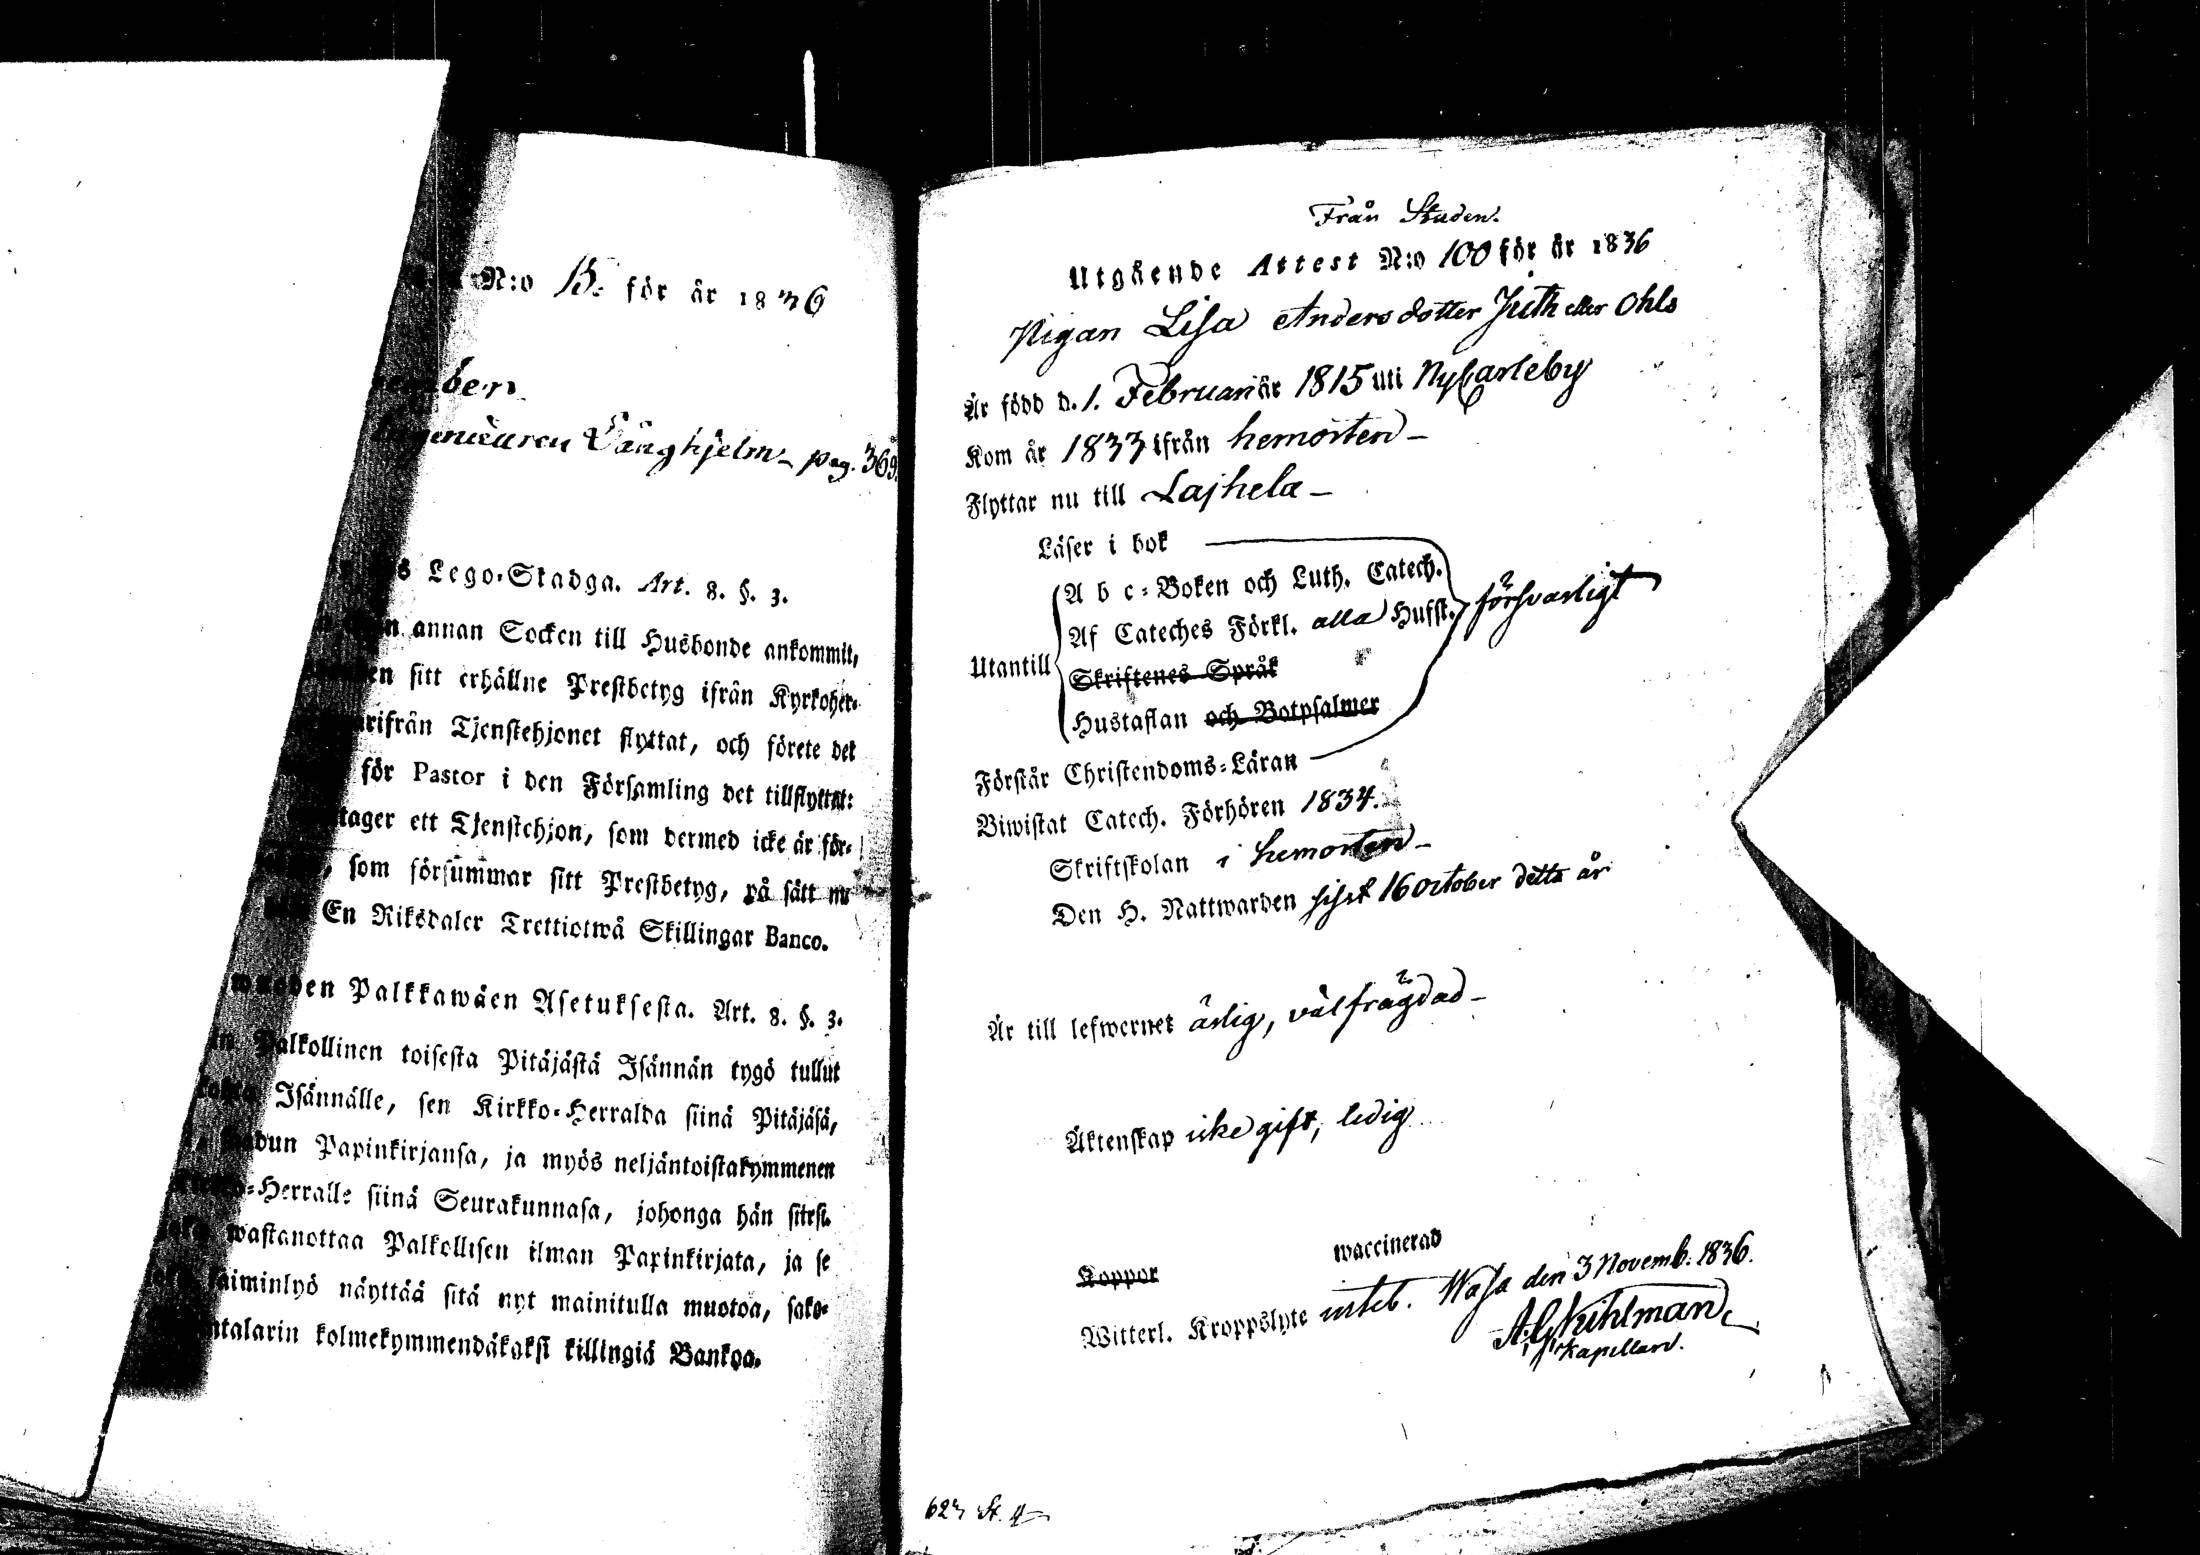 N:o 15. för år 1836
Långhjelm - pag. 369.
Lego-Stadga. Art. 8. §. 3.
annan Socken till Husbonde ankommit,
sitt erhållne Prestbetyg ifrån Kyrkoher-
Tjenstehjonet flyttat, och förete det
för Pastor i den Församling det tillflyttat:
tager ett Tjenstehjon, som dermed icke är för-
som försummar sitt Prestbetyg, på sätt nu
En Riksdaler Trettiotwå Skillingar Banco.
Palkkawäen Asetuksesta. Art. 8. §. 3.
Palkollinen toisesta Pitäjästä Isännän tygö tullut
Isännälle, sen Kirkko-Herralda siinä Pitäjäsä,
Papinkirjansa, ja myös neljäntoistakymmenen
Herralle siinä Seurakunnasa, johonga hän siirsi.
wastanottaa Palkollisen ilman Papinkirjata, ja se
laiminlyö näyttää sitä nyt mainitulla muotoa, sako-
kolmekymmendäkaksi killingiä Bankoa.
Från Staden.
Utgående Attest N:o 100 för år 1836
Pigan Lisa Andersdotter Juth eller Ohls
Är född d. 1. Februari år 1815 uti Nycarleby
Kom år 1833 ifrån hemorten -
Flyttar nu till Lajhela -
Läser i bok
A b c-Boken och Luth. Catech.
Af Cateches Förkl. alla Hufst. försvarligt
Utantill
Skriftenes Språk
Hustaflan och Botpsalmer
Förstår Christendoms-Läran
Biwistat Catech. Förhören 1834.
Skriftskolan i hemorten -
Den H. Nattwarden sist 16 october detta år
Är till lefwernet ärlig, välfrägdad -
Äktenskap icke gift, ledig
Koppor waccinerad
Witterl. Kroppslyte Wasa den 3 Novemb: 1836.
A. G. Kihlman
Kapellan.